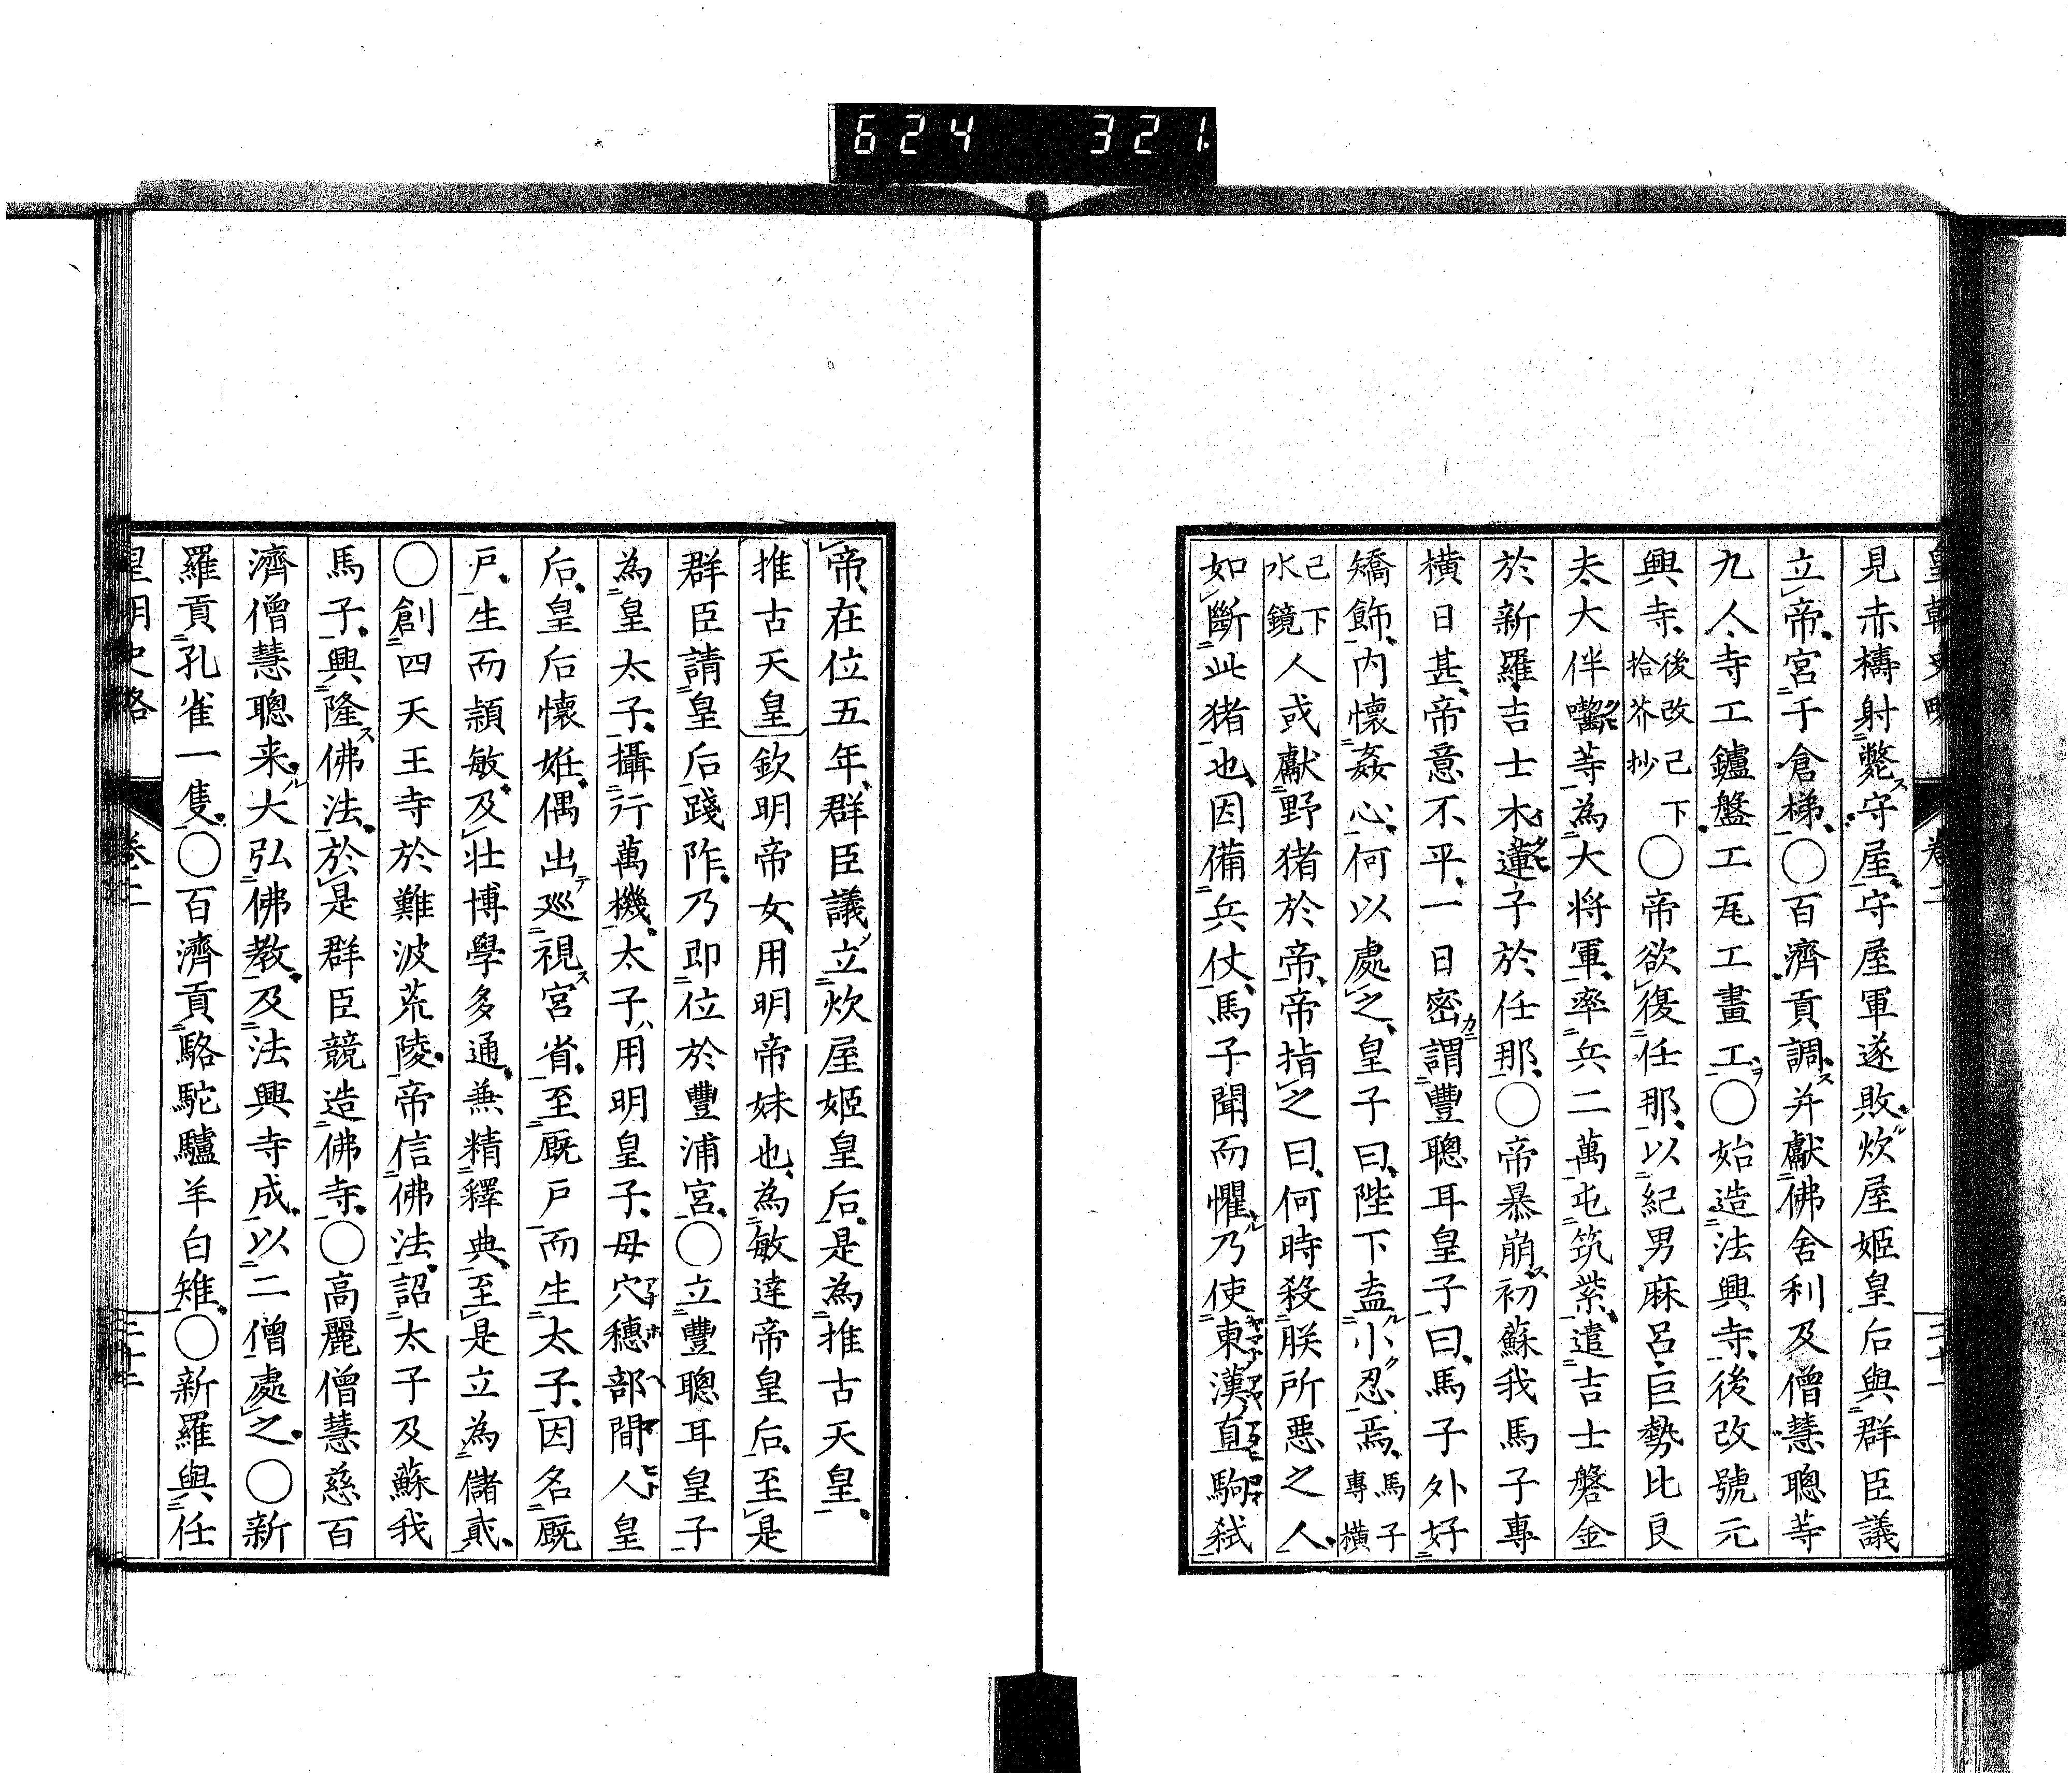 624 321
皇朝史略 卷二
見赤檮射斃守屋守屋軍遂敗炊屋姬皇后與群臣議
立帝宮于倉梯○百濟貢調并獻佛舍利及僧慧聰等
九人寺工鑪盤工瓦工畫工○始造法興寺後改號元
興寺後改己下拾芥抄○帝欲復任那以紀男麻呂巨勢比良
夫大伴囓等為大將軍率兵二萬屯筑紫遣吉士磐金
於新羅吉士木蓮子於任那○帝暴崩初蘇我馬子專
橫日甚帝意不平一日密謂豐聰耳皇子曰馬子外好
矯飾內懷姦心何以處之皇子曰陛下盍小忍焉馬子專橫
己下水鏡人或獻野猪於帝帝指之曰何時殺朕所惡之人
如斷此猪也因備兵仗馬子聞而懼乃使東漢直駒弒
帝在位五年群臣議立炊屋姬皇后是為推古天皇
推古天皇欽明帝女用明帝妹也為敏達帝皇后至是
群臣請皇后踐阼乃即位於豐浦宮○立豐聰耳皇子
為皇太子攝行萬機太子用明皇子母穴穗部間人皇
后皇后懷妊偶出巡視宮省至厩戶而生太子因名厩
戶生而頴敏及壯博學多通兼精釋典至是立為儲貳
○創四天王寺於難波荒陵帝信佛法詔太子及蘇我
馬子興隆佛法於是群臣競造佛寺○高麗僧慧慈百
濟僧慧聰来大弘佛教及法興寺成以二僧處之○新
羅貢孔雀一隻○百濟貢駱駝驢羊白雉○新羅與任
史略 卷二